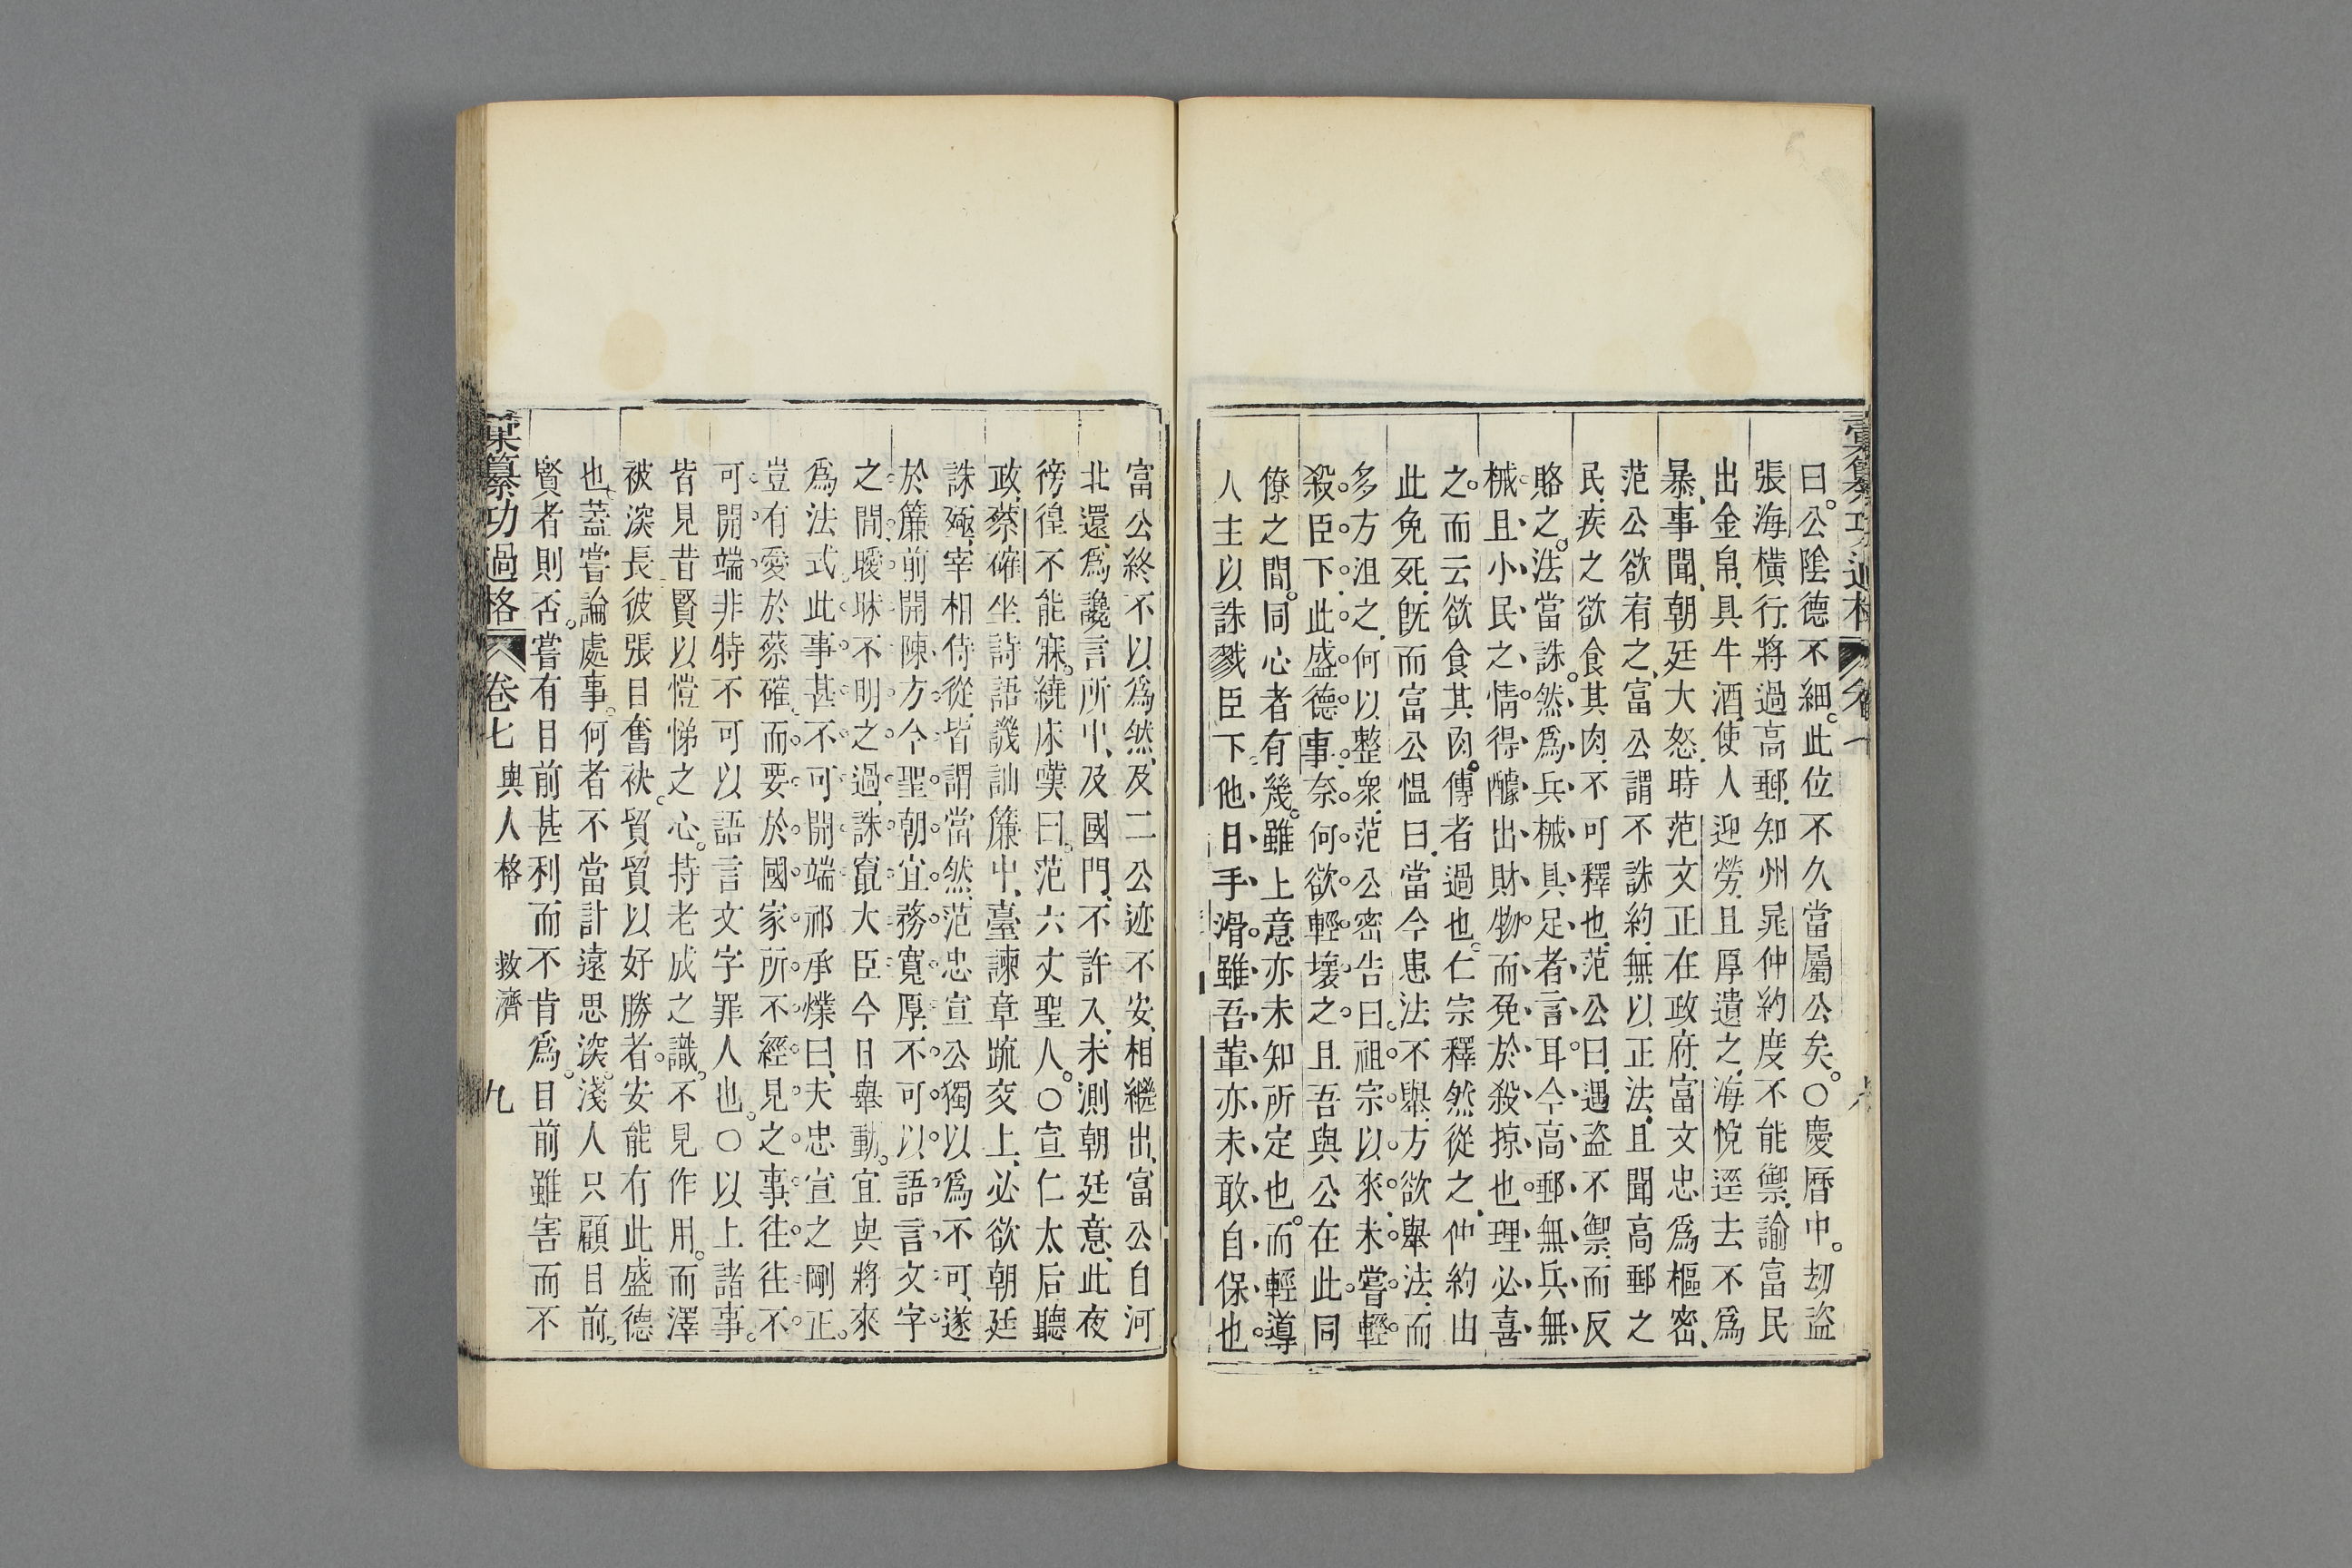 曰。公陰德不細。此位不久當屬公矣。○慶曆中。刼盜
張海橫行。將過高郵。知州晁仲約度不能禦。諭富民
出金帛。具牛酒。使人迎勞。且厚遺之。海悅逕去不爲
暴。事聞。朝廷大怒。時范文正在政府。富文忠爲樞密、
范公欲宥之、富公謂不誅約。無以正法。且聞高郵之
民。疾之欲食其肉。不可釋也。范公曰。遇盜不禦。而反
賂之。法當誅。然爲兵械具足者言耳。今高郵無兵無
械。且小民之情。得醵出財物。而免於殺掠也。理必喜
之。而云欲食其肉。傳者過也。仁宗釋然從之。仲約由
此免死。旣而富公慍曰。當今患法不舉。方欲舉法。而
多方沮之。何以整衆。范公密告曰。祖宗以來。未嘗輕
殺臣下。此盛德事。奈何欲輕壞之。且吾與公在此同
僚之間。同心者有幾。雖上意亦未知所定也。而輕導
人主以誅戮臣下。他日手滑。雖吾輩亦未敢自保也。
富公終不以爲然。及二公迹不安、相繼出、富公自河
北還、爲讒言所中、及國門、不許入、未測朝廷意、此夜
徬徨不能寐。繞床嘆曰。范六丈聖人。○宣仁太后聽
政、蔡確坐詩語譏訕簾中、臺諫章疏交上、必欲朝廷
誅殛、宰相侍從、皆謂當然、范忠宣公獨以爲不可、遂
於簾前開陳。方今聖朝。宜務寬厚。不可以語言文字
之間。曖昧不明之過、誅竄大臣今日舉動。宜與將來
爲法式。此事甚不可開端。祁承㸁曰、夫忠宣之剛正。
豈有愛於蔡確。而要於國家所不經見之事。往往不
可開端。非特不可以語言文字罪人也。○以上諸事。
皆見昔賢以愷悌之心。持老成之識。不見作用。而澤
被深長彼張目奮袂。貿貿以好勝者。安能有此盛德
也。蓋嘗論處事。何者不當計遠思深。淺人只顧目前。
賢者則否。嘗有目前甚利而不肯爲。目前雖害而不
彙纂功過格 卷七 與人格 救濟 九